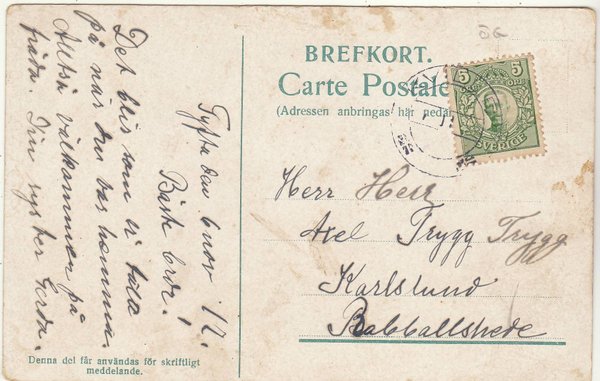 BREFKORT.
Carte Postale
(Adressen anbringas här nedan
5 5
SVERIGE
Herr Herr
Axel Trygg Trygg
Karlslund
Rabbalshede
den 6 nov 12.
Bäste bror!
Det blir som vi tala
på när du var hemma.
Alltså välkommen på
Din syster Gerda.
Denna del får användas för skriftligt
meddelande.